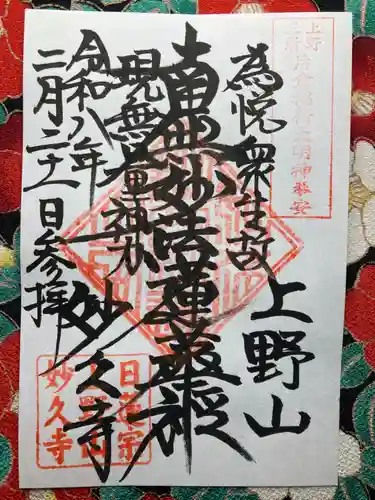 上野
為悦衆生故
上野山
南無妙法蓮華経
現無量神力
妙久寺
令和八年
二月二十一日参拝
日蓮宗
上野山
妙久寺